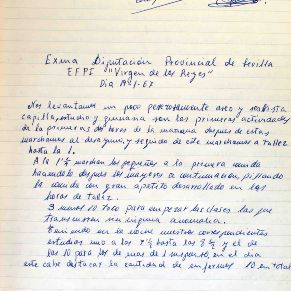 Exma Diputación Provincial de Sevilla
EFPI "Virgen de los Reyes"
Dia 19-1-67
Nos levantamos un poco perezosamente aseo y
capilla, estudio y gimnasia son las primeras actividades
de las primeras dos horas de la mañana despues de estas
marchamos al desayuno, y seguido de este marchamos a Taller
hasta la 1.
A la 1 ½ marchan los pequeños a la primera comida
haciendolo despues los mayores a continuación,
la comida con gran apetito desarrollado en las
horas de taller.
3 menos 10 Toco para empezar las clases las que
transcurren sin ninguna anomalia.
en la noche nuestros correspondientes
estudios uno a las 7 ½ hasta las 8 ½ y el de
las 10 para los de mas de 1 suspenso, en el dia
este cabe destacar la cantidad de enfermos 10 en total